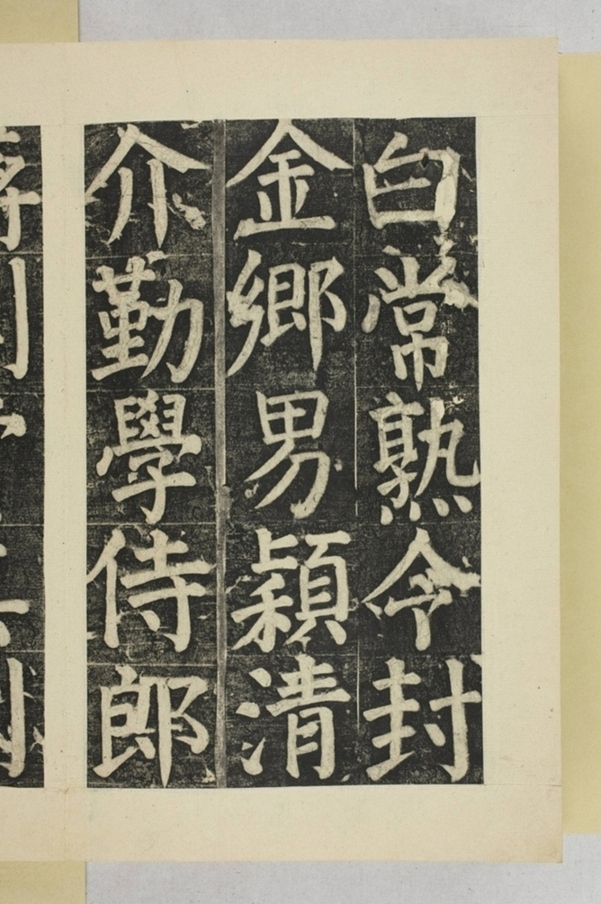 白常熟令封
金鄉男穎清
介勤學侍郎